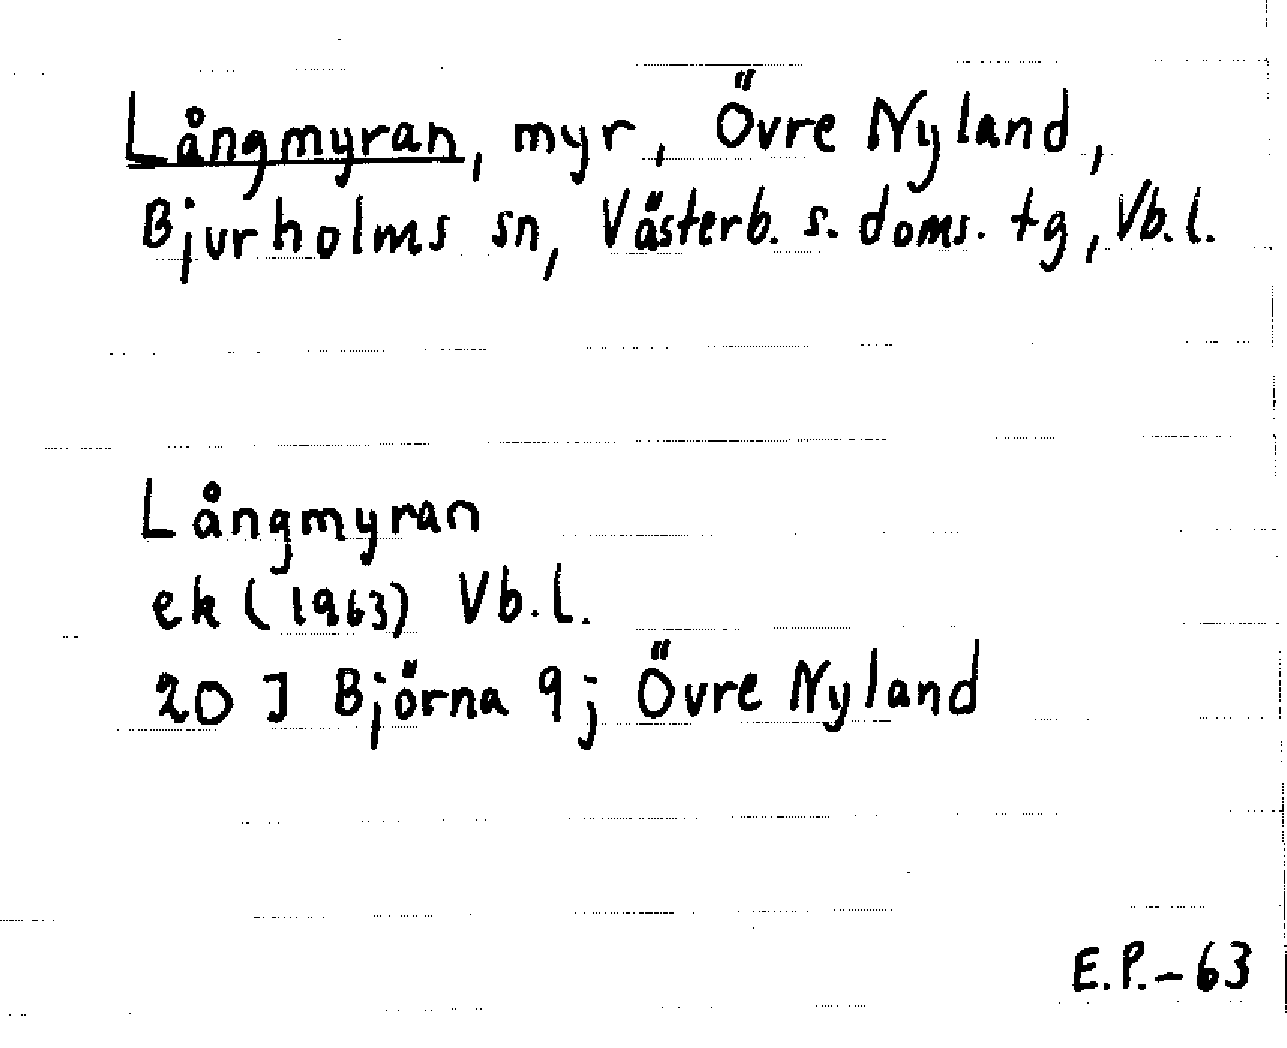 Långmyran, myr, Övre Nyland,
Bjurholms sn, Västerb. s. doms. tg, Vb. l.
Långmyran
ek (1963) Vb. l.
20 J Björna 9j Övre Nyland
E.P. - 63